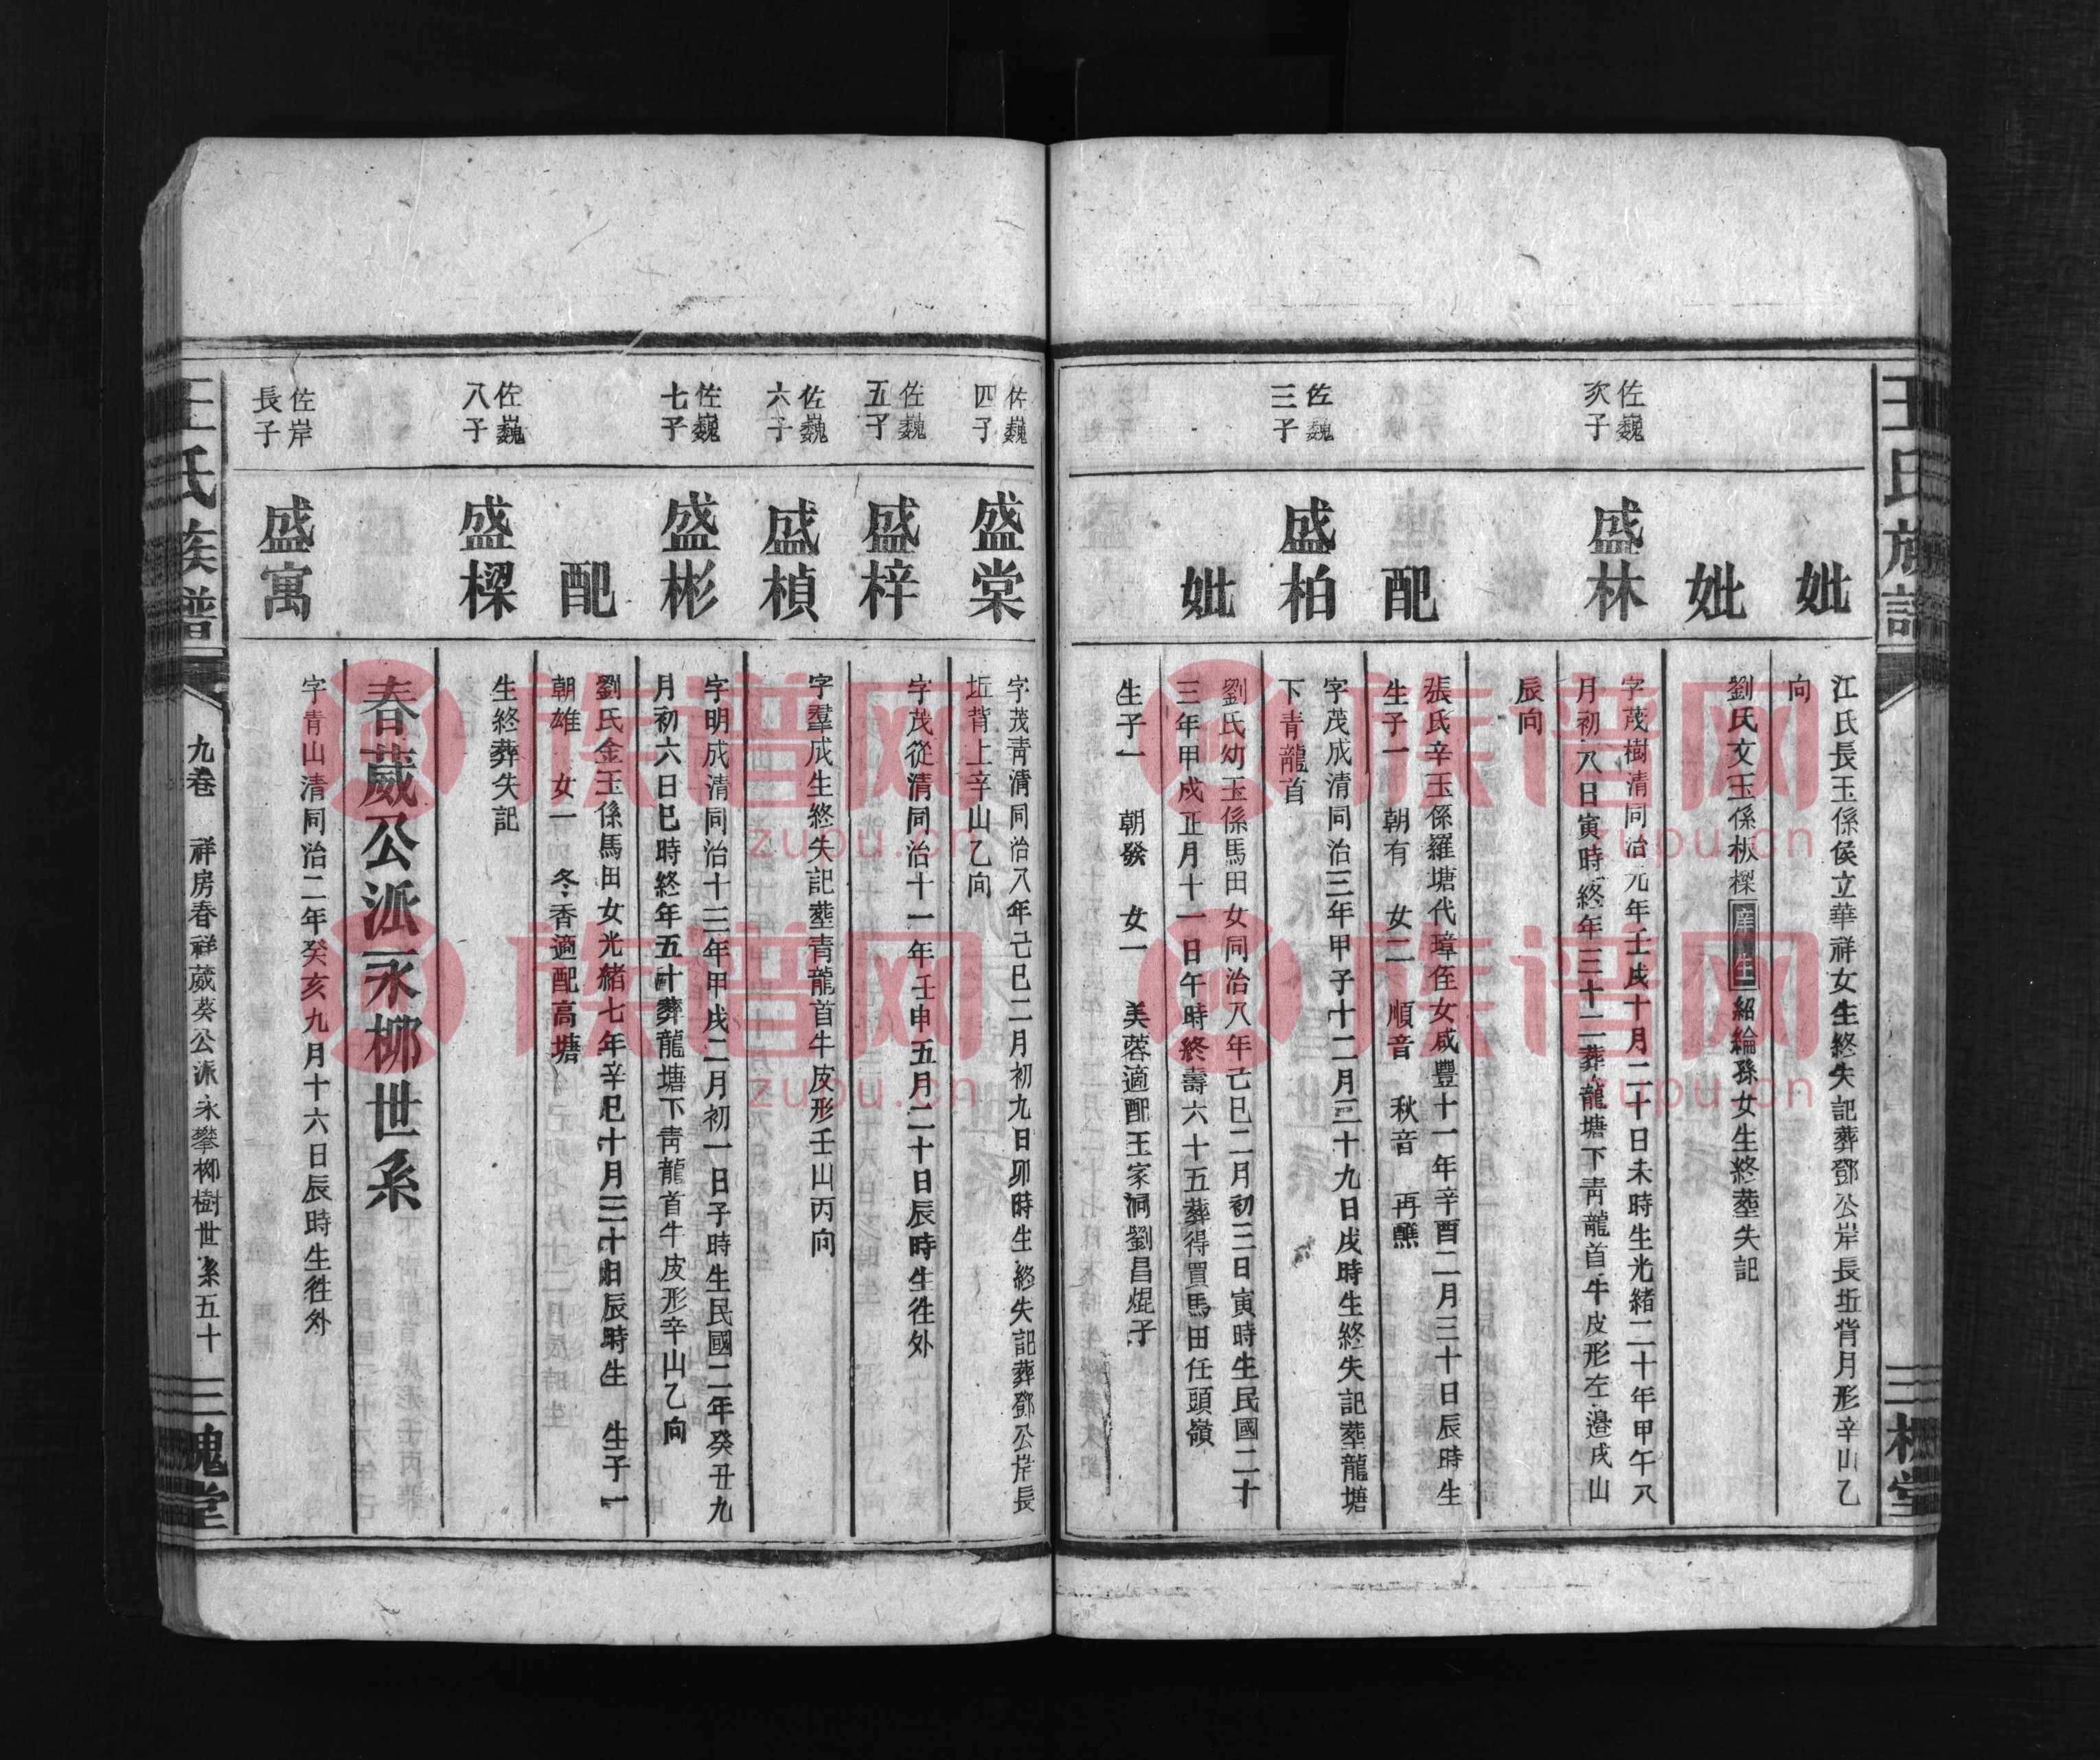 王氏族譜
三槐堂
妣
江氏長玉係侯立華祥女生終失記葬鄧公岸長坵背月形辛山乙
向
妣
劉氏文玉係楓樑庠生紹綸孫女生終塟失記
佐巍
次子
盛林
字茂樹清同治元年壬戌十月二十日未時生光緒二十年甲午八
月初八日寅時終年三十二葬龍塘下青龍首牛皮形左邊戌山
辰向
配
張氏辛玉係羅塘代璋侄女咸豐十一年辛酉二月三十日辰時生
生子一 朝有 女二 順音 秋音 再醮
佐巍
三子
盛柏
字茂成清同治三年甲子十二月二十九日戌時生終失記塟龍塘
下青龍首
妣
劉氏幼玉係馬田女同治八年己巳二月初三日寅時生民國二十
三年甲戌正月十一日午時終壽六十五葬得買馬田任頭嶺
生子一 朝發 女一 美蓉適配王家洞劉昌焜子
佐巍
四子
盛棠
字茂靑清同治八年己巳二月初九日卯時生終失記葬鄧公岸長
坵背上辛山乙向
佐巍
五子
盛梓
字茂從清同治十一年壬申五月二十日辰時生徃外
佐巍
六子
盛楨
字羣成生終失記塟青龍首牛皮形壬山丙向
佐巍
七子
盛彬
字明成清同治十三年甲戌二月初一日子時生民國二年癸丑九
月初六日巳時終年五十葬龍塘下靑龍首牛皮形辛山乙向
配
劉氏金玉係馬田女光緒七年辛巳十月三十日辰時生 生子一
朝雄 女一 冬香適配高塘
佐巍
八子
盛樑
生終葬失記
春葳公派永栁世系
佐岸
長子
盛寓
字青山清同治二年癸亥九月十六日辰時生徃外
王氏族譜
九卷 祥房春祥葳葵公派永攀栁樹世系五十
三槐堂
族谱网
zupu.cn
族谱网
zupu.cn
族谱网
zupu.cn
族谱网
zupu.cn